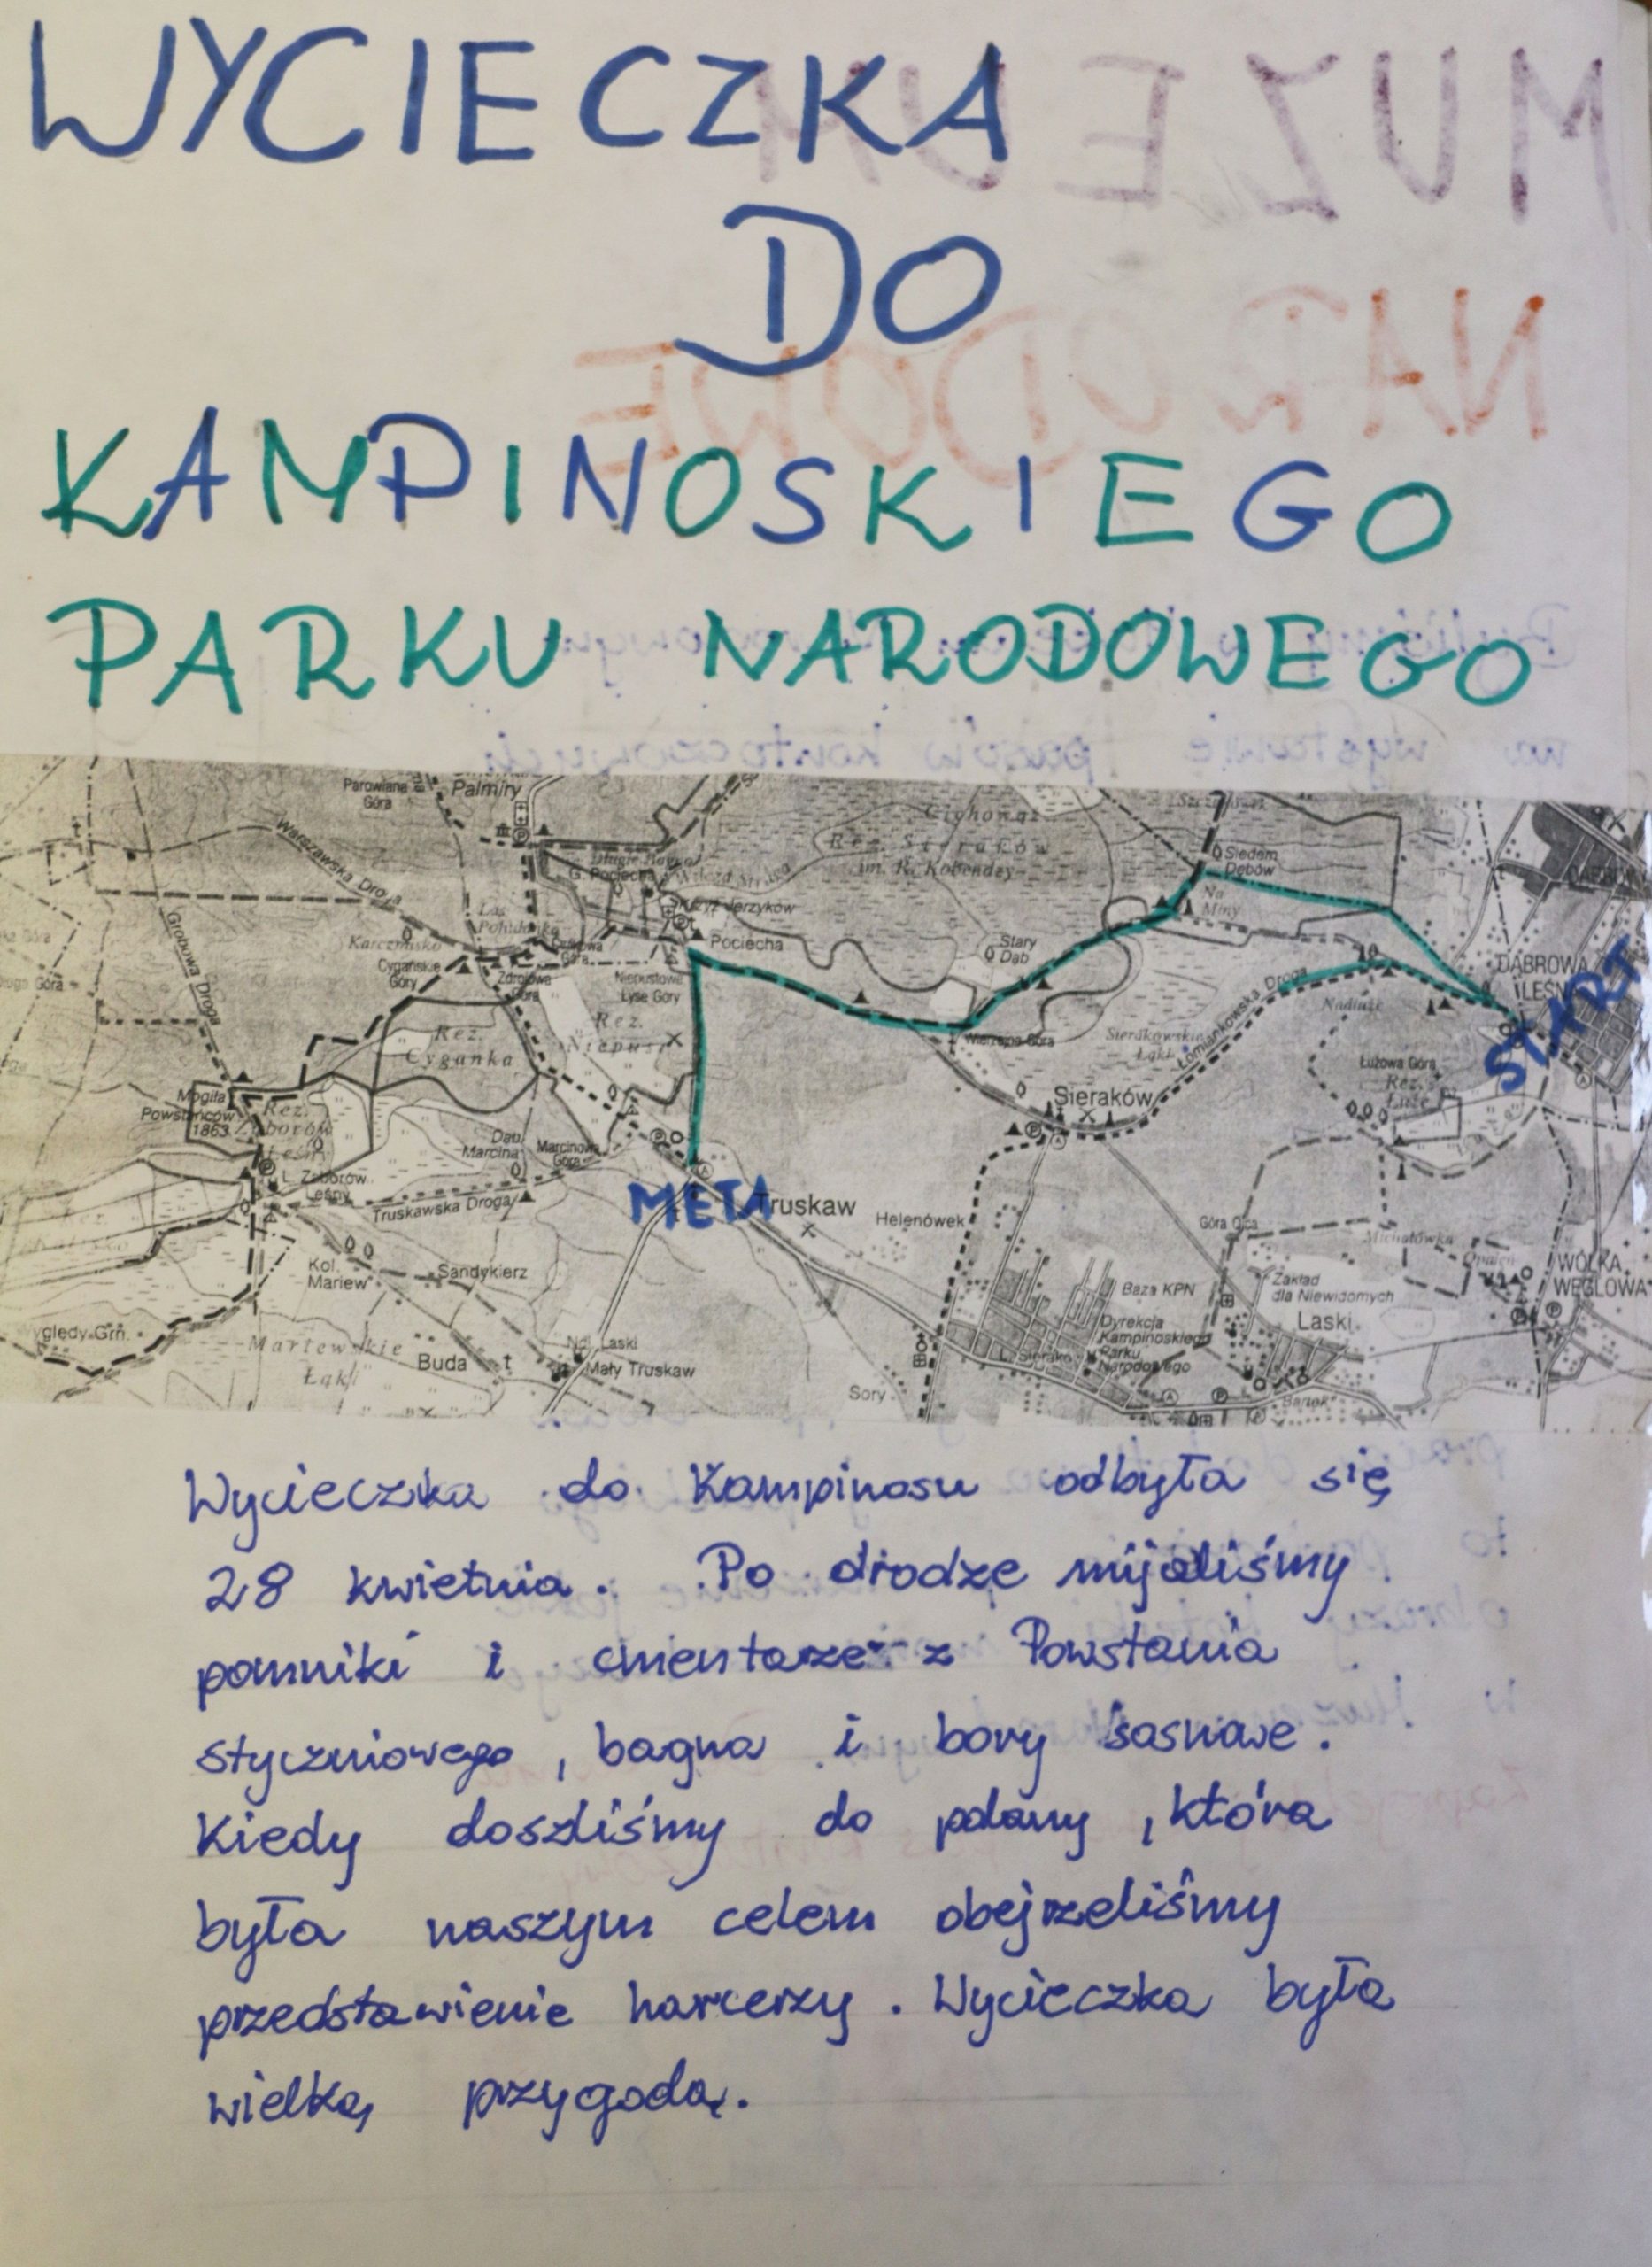 WYCIECZKA
DO
KAMPINOSKIEGO
PARKU NARODOWEGO
MUZEUM
NARODOWE
na wystawie pasów kontuszowych
Parowiana Góra
Palmiry
Warszawska Droga
Grobowa Droga
G. Pociecha
Rez. Sieraków
im. R. Kobendzy
Cichowąż
Siedem Dębów
Na Miny
Karczmisko
Cygańskie Góry
Zdrojowa Góra
Pociecha
Stary Dąb
Niepustowe Łyse Góry
DĄBROWA LEŚNA
START
Rez. Cyganka
Wierzejna Góra
Sierakowskie Łąki
Łomiankowska Droga
Nadłuże
Łużowa Góra
Rez. Łuże
Sieraków
Mogiła Powstańców 1863
Rez. Zaborów Leśny
Dąb Marcina
Marcinowa Góra
L. Zaborów Leśny
Truskawska Droga
META
Truskaw
Helenówek
Góra Ojca
Michałówka
Opaleń
WÓLKA WĘGLOWA
Kol. Mariew
Sandykierz
Baza KPN
Zakład dla Niewidomych
Dyrekcja Kampinoskiego Parku Narodowego
Laski
Mariewskie Łąki
Buda
Ndl. Laski
Mały Truskaw
Sory
L. Sieraków
Wycieczka do Kampinosu odbyła się
28 kwietnia. Po drodze mijaliśmy
pomniki i cmentarze z Powstania
styczniowego, bagna i bory sosnowe.
Kiedy doszliśmy do polany, która
była naszym celem obejrzeliśmy
przedstawienie harcerzy. Wycieczka była
wielką przygodą.